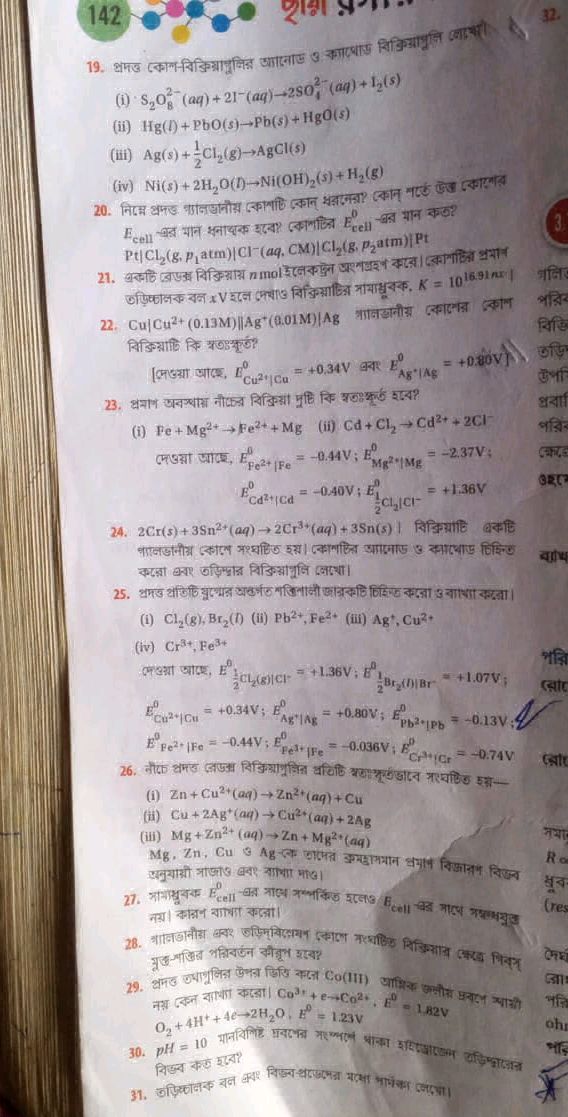 142
ছায়া
32.
19. প্রদত্ত কোশ-বিক্রিয়াগুলির অ্যানোড ও ক্যাথোড বিক্রিয়াগুলি লেখো।
(i) S₂O₈²⁻(aq) + 2I⁻(aq)→2SO₄²⁻(aq) + I₂(s)
(ii) Hg(l) + PbO(s)→Pb(s) + HgO(s)
(iii) Ag(s) + ½Cl₂(g)→AgCl(s)
(iv) Ni(s) + 2H₂O(l)→Ni(OH)₂(s) + H₂(g)
20. নিম্নে প্রদত্ত গ্যালভানীয় কোশটি কোন্ ধরনের? কোন্ শর্তে উক্ত কোশের
E_cell-এর মান ধনাত্মক হবে? কোশটির E⁰_cell-এর মান কত?
Pt|Cl₂(g, p₁atm)|Cl⁻(aq, CM)|Cl₂(g, p₂atm)|Pt
21. একটি রেডক্স বিক্রিয়ায় n mol ইলেকট্রন অংশগ্রহণ করে। কোশটির প্রমাণ
তড়িচ্চালক বল xV হলে দেখাও বিক্রিয়াটির সাম্যধ্রুবক, K = 10^16.91nx।
22. Cu|Cu²⁺(0.13M)||Ag⁺(0.01M)|Ag গ্যালভানীয় কোশের কোশ
বিক্রিয়াটি কি স্বতঃস্ফূর্ত?
[দেওয়া আছে, E⁰_Cu²⁺|Cu = +0.34V এবং E⁰_Ag⁺|Ag = +0.80V]
23. প্রমাণ অবস্থায় নীচের বিক্রিয়া দুটি কি স্বতঃস্ফূর্ত হবে?
(i) Fe + Mg²⁺→Fe²⁺ + Mg (ii) Cd + Cl₂→Cd²⁺ + 2Cl⁻
দেওয়া আছে, E⁰_Fe²⁺|Fe = −0.44V; E⁰_Mg²⁺|Mg = −2.37V;
E⁰_Cd²⁺|Cd = −0.40V; E⁰_½Cl₂|Cl⁻ = +1.36V
24. 2Cr(s) + 3Sn²⁺(aq)→2Cr³⁺(aq) + 3Sn(s)। বিক্রিয়াটি একটি
গ্যালভানীয় কোশে সংঘটিত হয়। কোশটির অ্যানোড ও ক্যাথোড চিহ্নিত
করো এবং তড়িদ্দ্বার বিক্রিয়াগুলি লেখো।
25. প্রদত্ত প্রতিটি যুগ্মের অন্তর্গত শক্তিশালী জারকটি চিহ্নিত করো ও ব্যাখ্যা করো।
(i) Cl₂(g), Br₂(l) (ii) Pb²⁺, Fe²⁺ (iii) Ag⁺, Cu²⁺
(iv) Cr³⁺, Fe³⁺
দেওয়া আছে, E⁰_½Cl₂(g)|Cl⁻ = +1.36V; E⁰_½Br₂(l)|Br⁻ = +1.07V;
E⁰_Cu²⁺|Cu = +0.34V; E⁰_Ag⁺|Ag = +0.80V; E⁰_Pb²⁺|Pb = −0.13V;
E⁰_Fe²⁺|Fe = −0.44V; E⁰_Fe³⁺|Fe = −0.036V; E⁰_Cr³⁺|Cr = −0.74V
26. নীচে প্রদত্ত রেডক্স বিক্রিয়াগুলির প্রতিটি স্বতঃস্ফূর্তভাবে সংঘটিত হয়—
(i) Zn + Cu²⁺(aq)→Zn²⁺(aq) + Cu
(ii) Cu + 2Ag⁺(aq)→Cu²⁺(aq) + 2Ag
(iii) Mg + Zn²⁺(aq)→Zn + Mg²⁺(aq)
Mg, Zn, Cu ও Ag-কে তাদের ক্রমহ্রাসমান প্রমাণ বিজারণ বিভব
অনুযায়ী সাজাও এবং ব্যাখ্যা দাও।
27. সাম্যধ্রুবক E⁰_cell-এর সাথে সম্পর্কিত হলেও E_cell-এর সাথে সম্বন্ধযুক্ত
নয়। কারণ ব্যাখ্যা করো।
28. গ্যালভানীয় এবং তড়িদ্‌বিশ্লেষণ কোশে সংঘটিত বিক্রিয়ার ক্ষেত্রে গিবস্
মুক্ত-শক্তির পরিবর্তন কীরূপ হবে?
29. প্রদত্ত তথ্যগুলির উপর ভিত্তি করে Co(III) আয়নিক জলীয় দ্রবণে স্থায়ী
নয় কেন ব্যাখ্যা করো। Co³⁺ + e→Co²⁺, E⁰ = 1.82V
O₂ + 4H⁺ + 4e→2H₂O, E⁰ = 1.23V
30. pH = 10 মানবিশিষ্ট দ্রবণের সংস্পর্শে থাকা হাইড্রোজেন তড়িদ্দ্বারের
বিভব কত হবে?
31. তড়িচ্চালক বল এবং বিভব-প্রভেদের মধ্যে পার্থক্য লেখো।